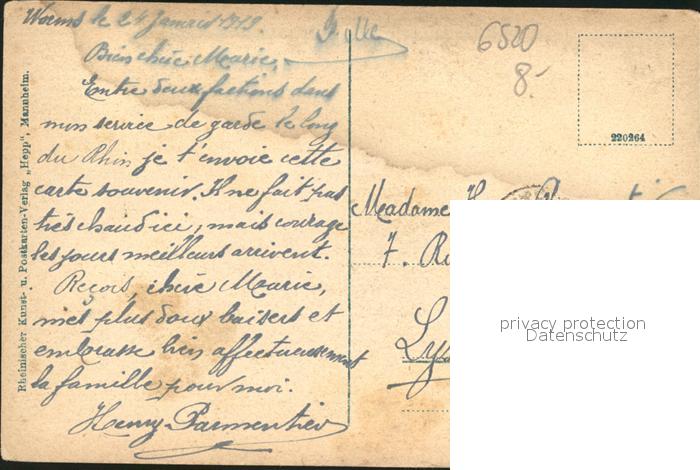 Worms le 24 Janvier 1919.
Bien chère Marie,
Entre deux factions dans
mon service de garde le long
du Rhin je t'envoie cette
carte souvenir. Il ne fait pas
très chaud ici, mais courage
les jours meilleurs arrivent.
Reçois, chère Marie,
mes plus doux baisers et
embrasse bien affectueusement
la famille pour moi.
Henry Parmentier
Rheinischer Kunst- u. Postkarten-Verlag „Hepp", Mannheim.
6520
8.-
220264
Madame
7. Ru
Ly
privacy protection
Datenschutz